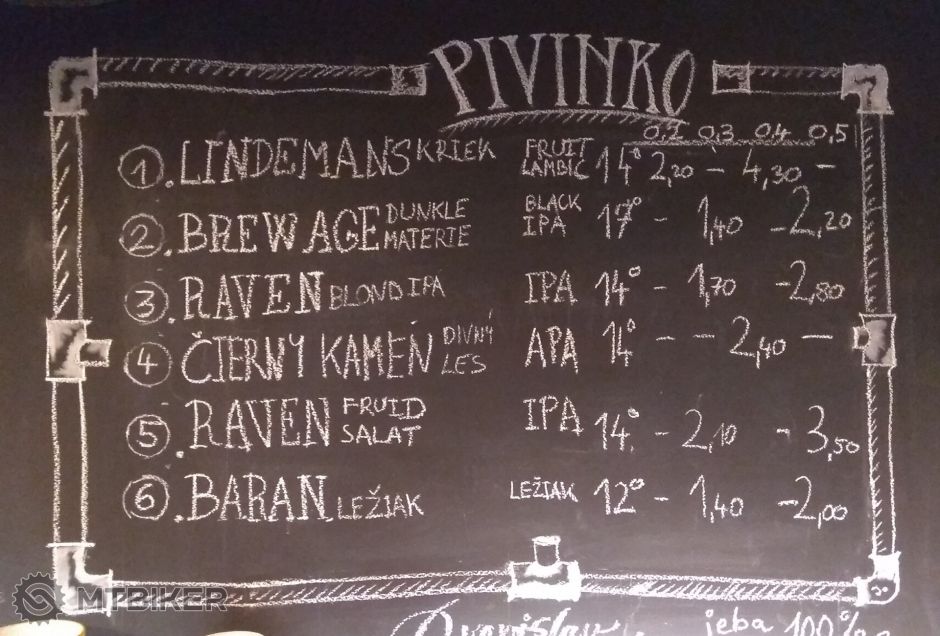 PIVINKO
0,2 0,3 0,4 0,5
1. LINDEMANS KRIEK FRUIT LAMBIC 14° 2,20 – 4,30 –
2. BREW AGE DUNKLE MATERIE BLACK IPA 17° – 1,40 – 2,20
3. RAVEN BLOND IPA IPA 14° – 1,70 – 2,80
4. ČIERNY KAMEŇ DIVNÝ LES APA 14° – – 2,40 –
5. RAVEN FRUID SALAT IPA 14° – 2,10 – 3,50
6. BARAN LEŽIAK LEŽIAK 12° – 1,40 – 2,00
MTBIKER
jeba 100%